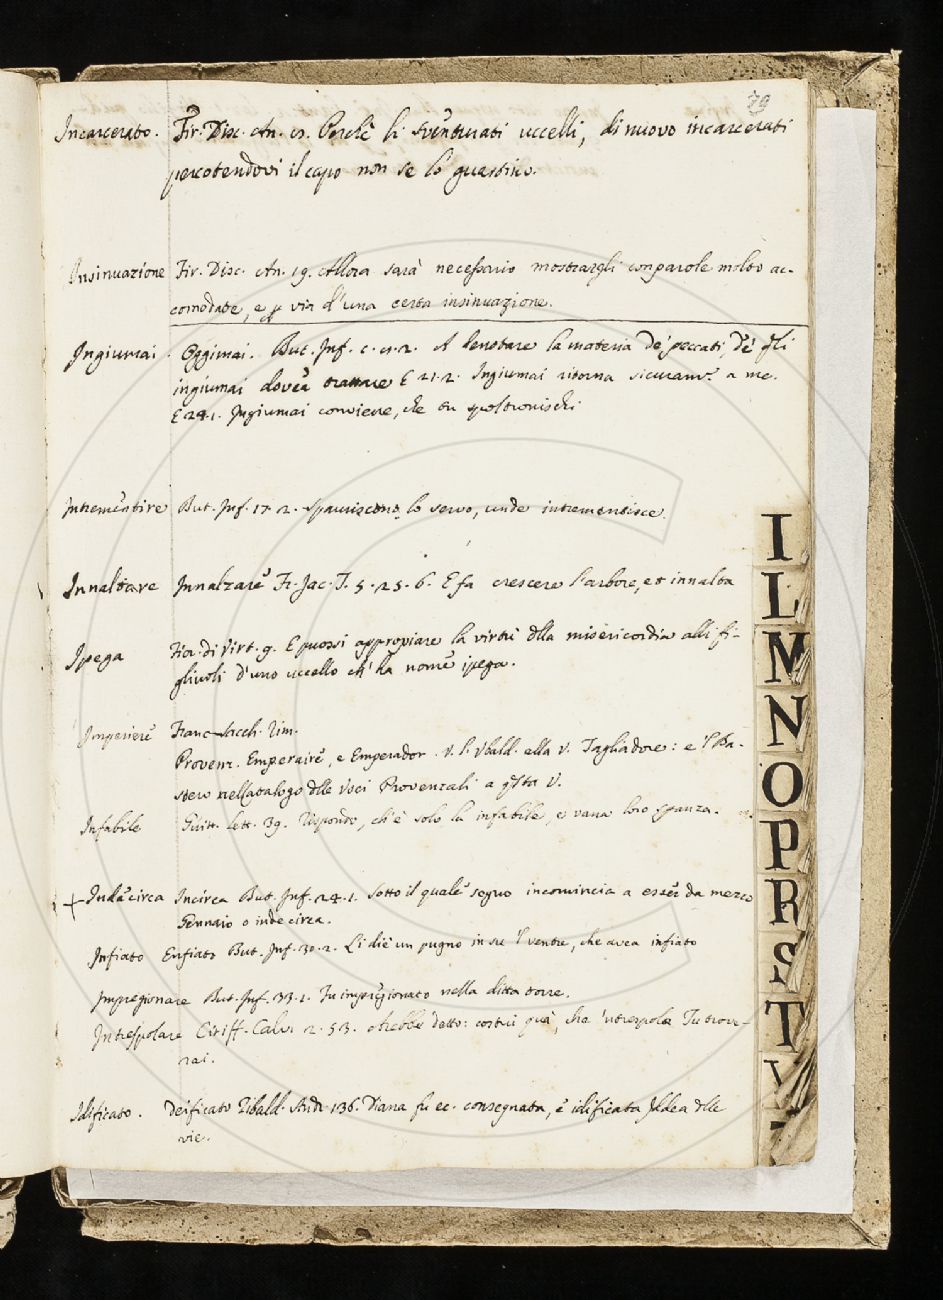 79
Incarcerato. Fir. Disc. An. 13. Perchè li sventurati uccelli, di nuovo incarcerati
percotendovi il capo non se lo guastino.
Insinuazione Fir. Disc. An. 19. Allora sarà necessario mostrargli con parole molto ac-
comodate, e p via d'una certa insinuazione.
Ingiumai. Oggimai. But. Inf. A denotare la materia de' peccati, de' gli
ingiumai dovea trattare E 21.2. Ingiumai ritorna sicuram.e a me.
E 24.1. Ingiumai conviene, che tu spoltronischi
Intrementire But. Inf. 17.2. Spauriscono lo servo, unde intrementisce.
Innaltare Innalzare Fr. Jac. T. 5.25.6. E fa crescere l'arbore, et innalta
Ipega Fior. di Virt. 9. E puossi appropiare la virtù dlla misericordia alli fi-
gliuoli d'uno uccello ch' ha nome ipega.
Imperiere Franc. Sacch. Rim.
Provenz. Emperaire, e Emperador. V. l'Ubald. alla V. Tagliadore: e 'l Ba-
stero nel Catalogo dlle Voci Provenzali a qsta V.
Infabile Guitt. Lett. 39. Rispondo, ch'è solo la infabile, e vana loro speranza.
+ Indecirca Incirca But. Inf. 24.1. Sotto il quale segno incomincia a esser da mezzo
Gennaio o indecirca.
Infiato Enfiato But. Inf. 30.2. Li diè un pugno in su 'l ventre, che avea infiato
Impregionare But. Inf. 33.1. Fu impregionato nella ditta torre.
Intrespolare Ciriff. Calv. 2.53. Arebbe detto: costui qua, che 'ntrespola Tu trove-
rai.
Idificato. Deificato Zibald. Andr. 136. Diana fu ec. consegnata, e idificata Iddea dlle
vie.
I
L
M
N
O
P
R
S
T
V
Z